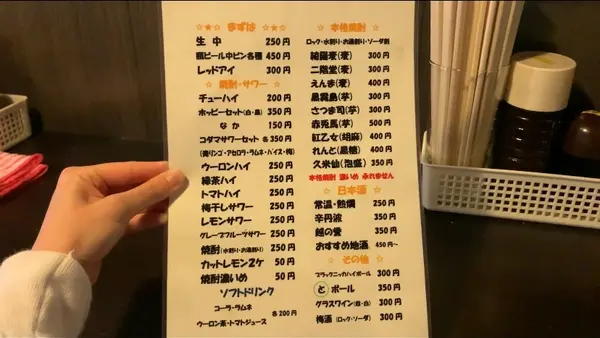 ☆★☆ まずは ☆★☆
生 中 250円
瓶ビール中ビン各種 450円
レッドアイ 300円
☆ 焼酎・サワー ☆
チューハイ 200円
ホッピーセット(白・黒) 350円
なか 150円
コダマサワーセット 各350円
(青リンゴ・アセロラ・ラムネ・バイス・梅)
ウーロンハイ 250円
緑茶ハイ 250円
トマトハイ 250円
梅干しサワー 250円
レモンサワー 250円
グレープフルーツサワー 250円
焼酎(水割り・お湯割り) 250円
カットレモン2ケ 50円
焼酎濃いめ 50円
ソフトドリンク
コーラ・ラムネ
各200円
ウーロン茶・トマトジュース
☆ 本格焼酎 ☆
ロック・水割り・お湯割り・ソーダ割
(麦) 300円
二階堂(麦) 300円
えんま(麦) 400円
黒霧島(芋) 300円
さつま司(芋) 300円
赤兎馬(芋) 500円
紅乙女(胡麻) 400円
れんと(黒糖) 400円
久米仙(泡盛) 350円
本格焼酎 濃いめ 承れません
☆ 日本酒 ☆
常温・熱燗 250円
辛丹波 350円
越の誉 350円
おすすめ地酒 450円～
☆ その他 ☆
ブラックニッカハイボール 300円
とボール 350円
グラスワイン(赤・白) 300円
梅酒(ロック・ソーダ) 300円